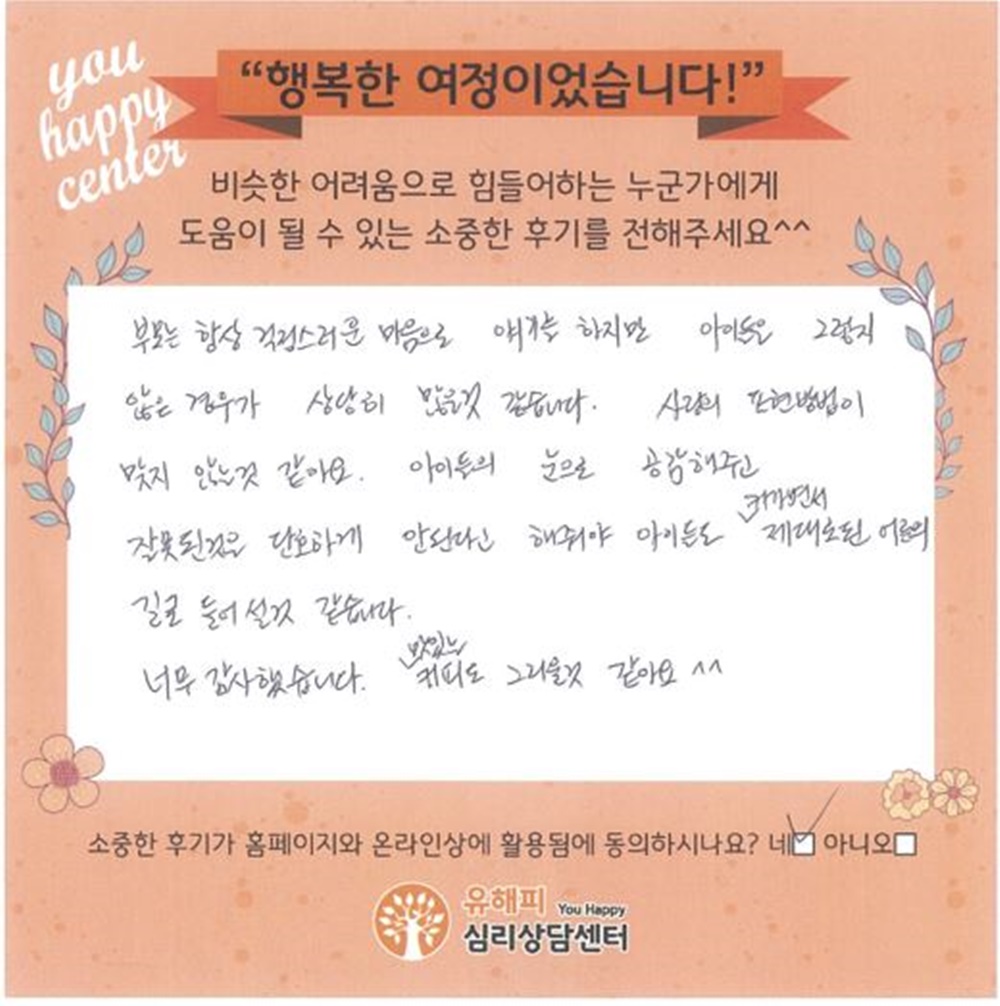 you
happy
center
“행복한 여정이었습니다!”
비슷한 어려움으로 힘들어하는 누군가에게
도움이 될 수 있는 소중한 후기를 전해주세요^^
부모는 항상 걱정스러운 마음으로 얘기를 하지만 아이들은 그렇지
않은 경우가 상당히 많을것 같습니다. 사랑의 표현방법이
맞지 않는것 같아요. 아이들의 눈으로 공감해주고
커가면서
잘못된것은 단호하게 안된다고 해줘야 아이들도 제대로된 어른의
길로 들어설것 같습니다.
맛있는
너무 감사했습니다. 커피도 그리울것 같아요 ^^
소중한 후기가 홈페이지와 온라인상에 활용됨에 동의하시나요? 네 아니오
유해피 You Happy
심리상담센터